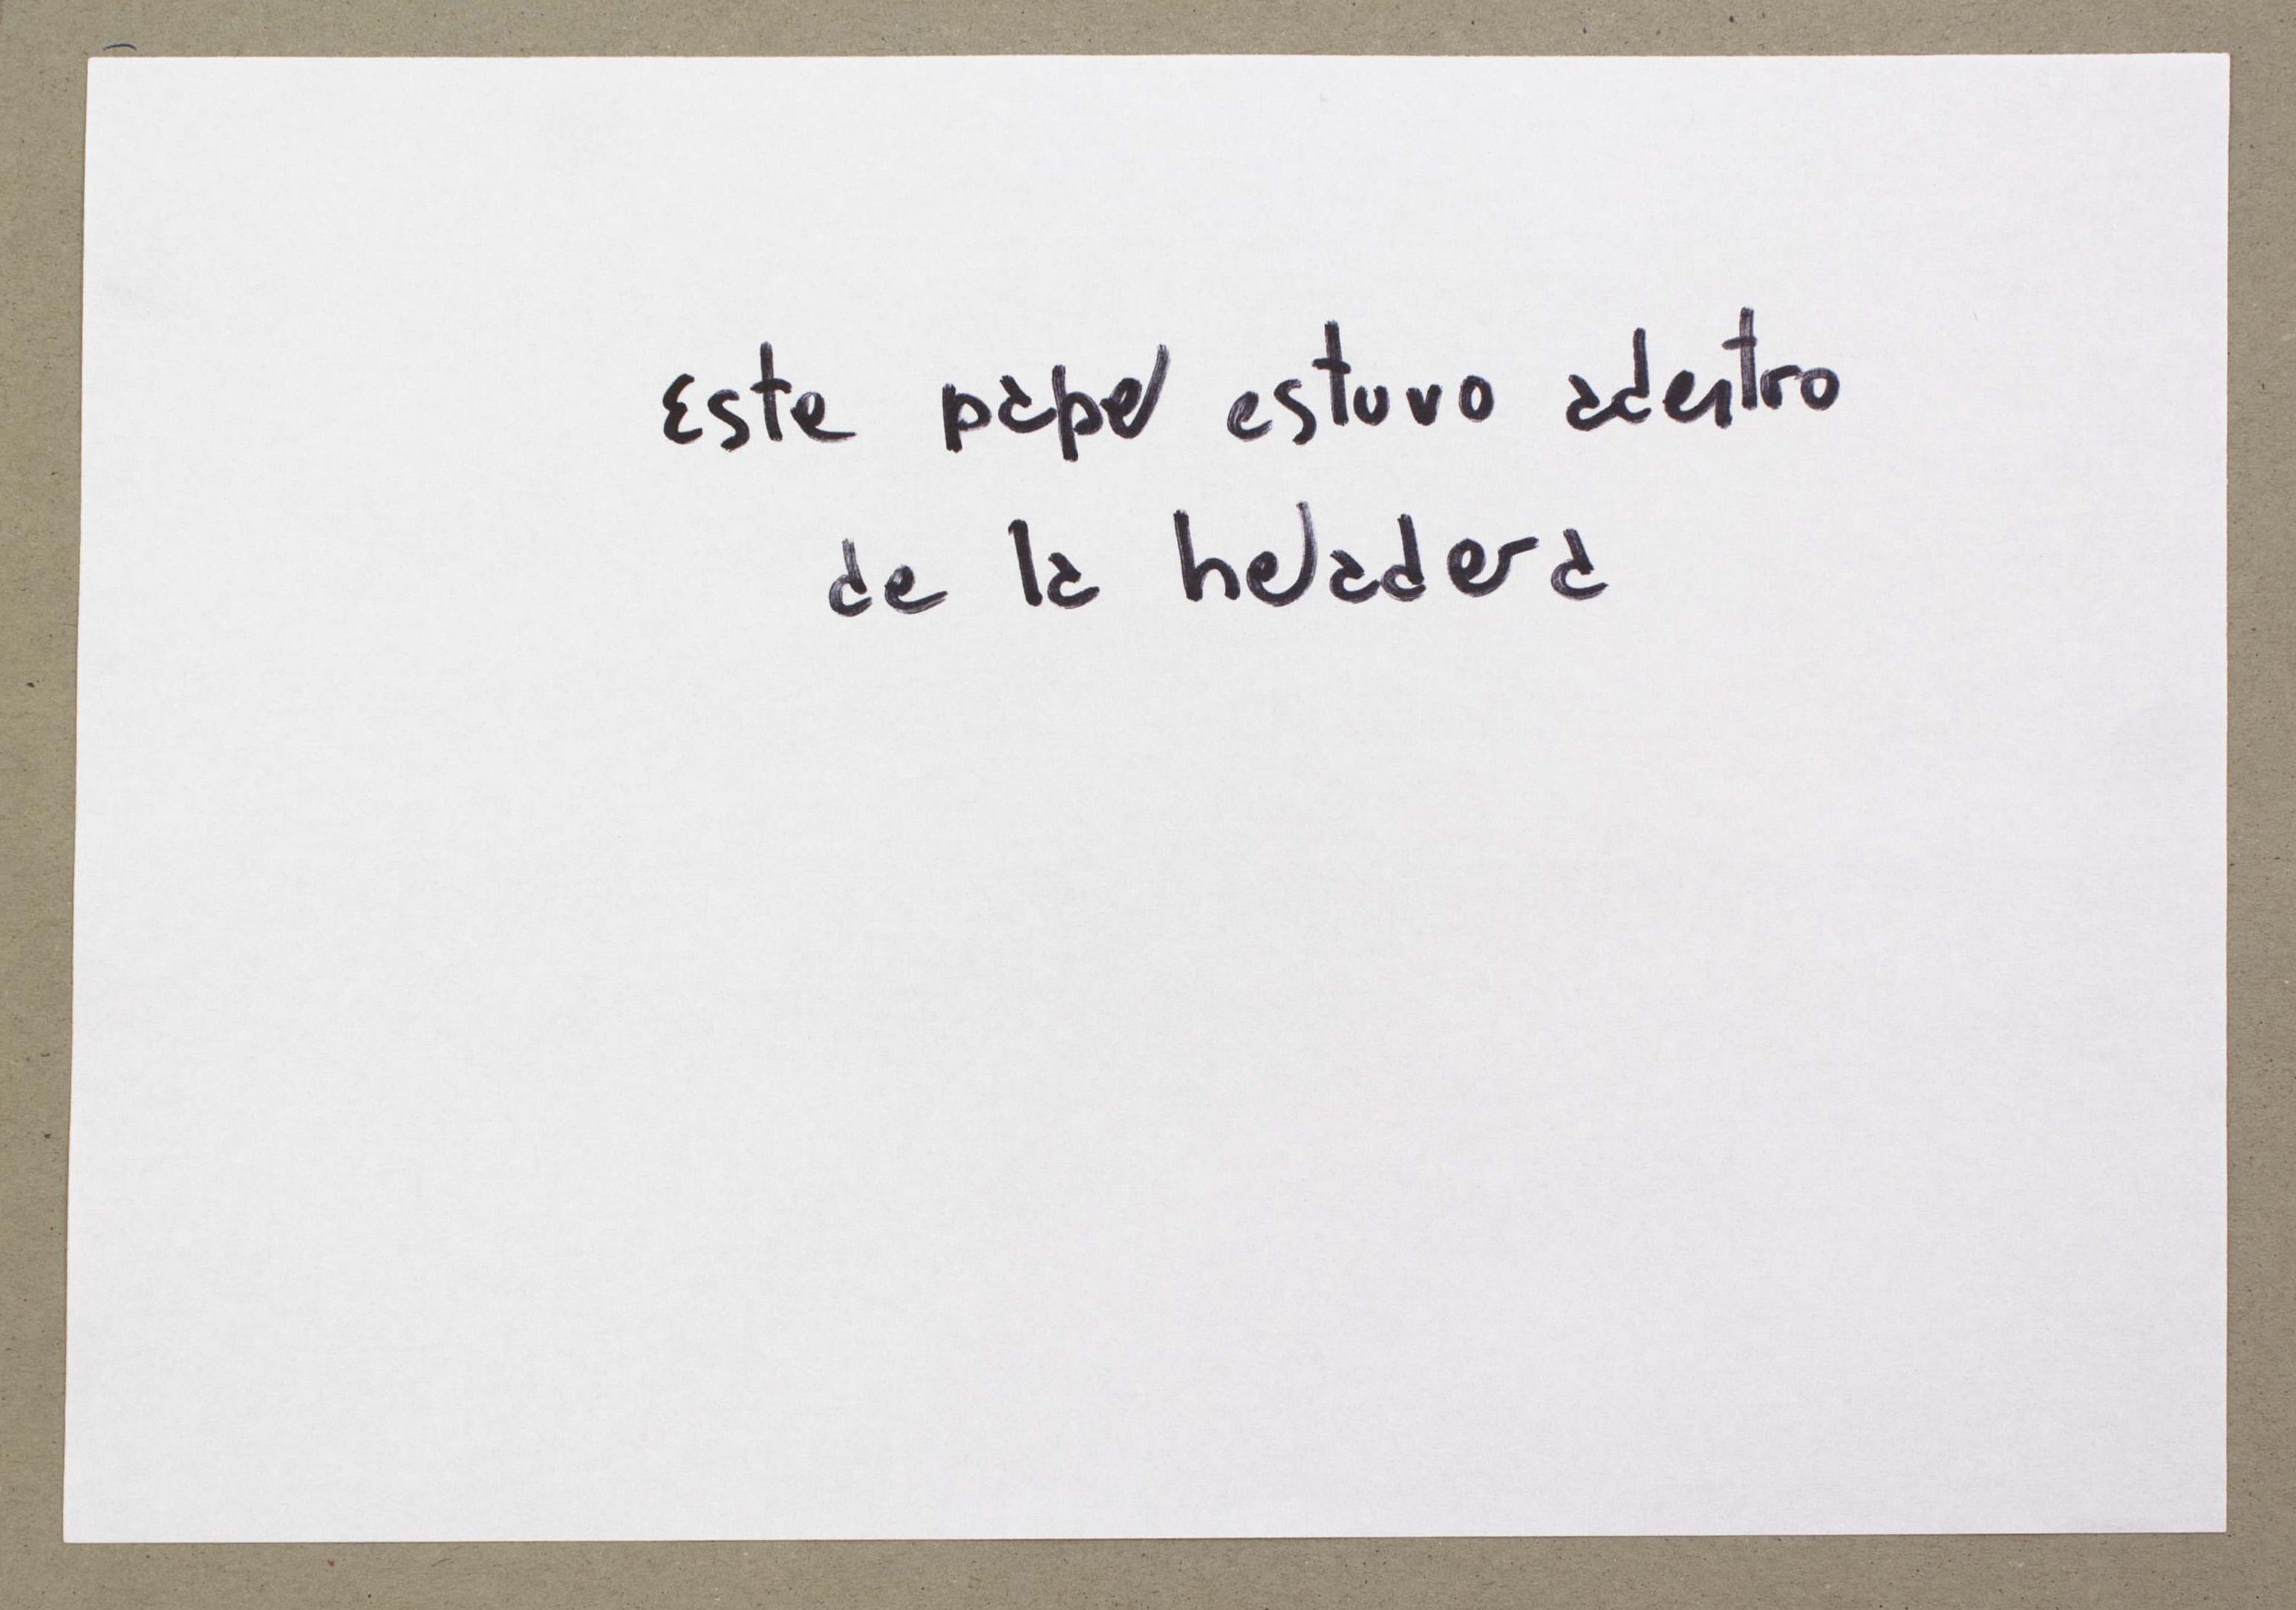 Este papel estuvo adentro
de la heladera